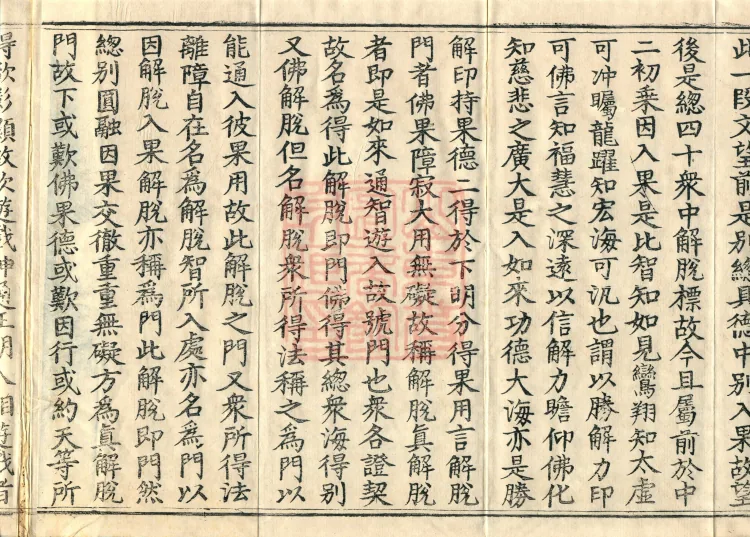 此一段文望前是別總具德中別入果故望
後是總四十衆中解脫標故今且屬前於中
二初乘因入果是比智知如見鸞翔知太虛
可冲矚龍躍知宏海可汎也謂以勝解力印
可佛言知福慧之深遠以信解力瞻仰佛化
知慈悲之廣大是入如來功德大海亦是勝
解印持果德二得於下明分得果用言解脫
門者佛果障寂大用無礙故稱解脫真解脫
者即是如來通智遊入故號門也衆各證契
故名爲得此解脫即門佛得其總衆海得別
又佛解脫但名解脫衆所得法稱之爲門以
能通入彼果用故此解脫之門又衆所得法
離障自在名爲解脫智所入處亦名爲門以
因解脫入果解脫亦稱爲門此解脫即門然
總別圓融因果交徹重重無礙方爲真解脫
門故下或歎佛果德或歎因行或約天等所
得欲彰顯故次遊戲神通王明入相遊戲者